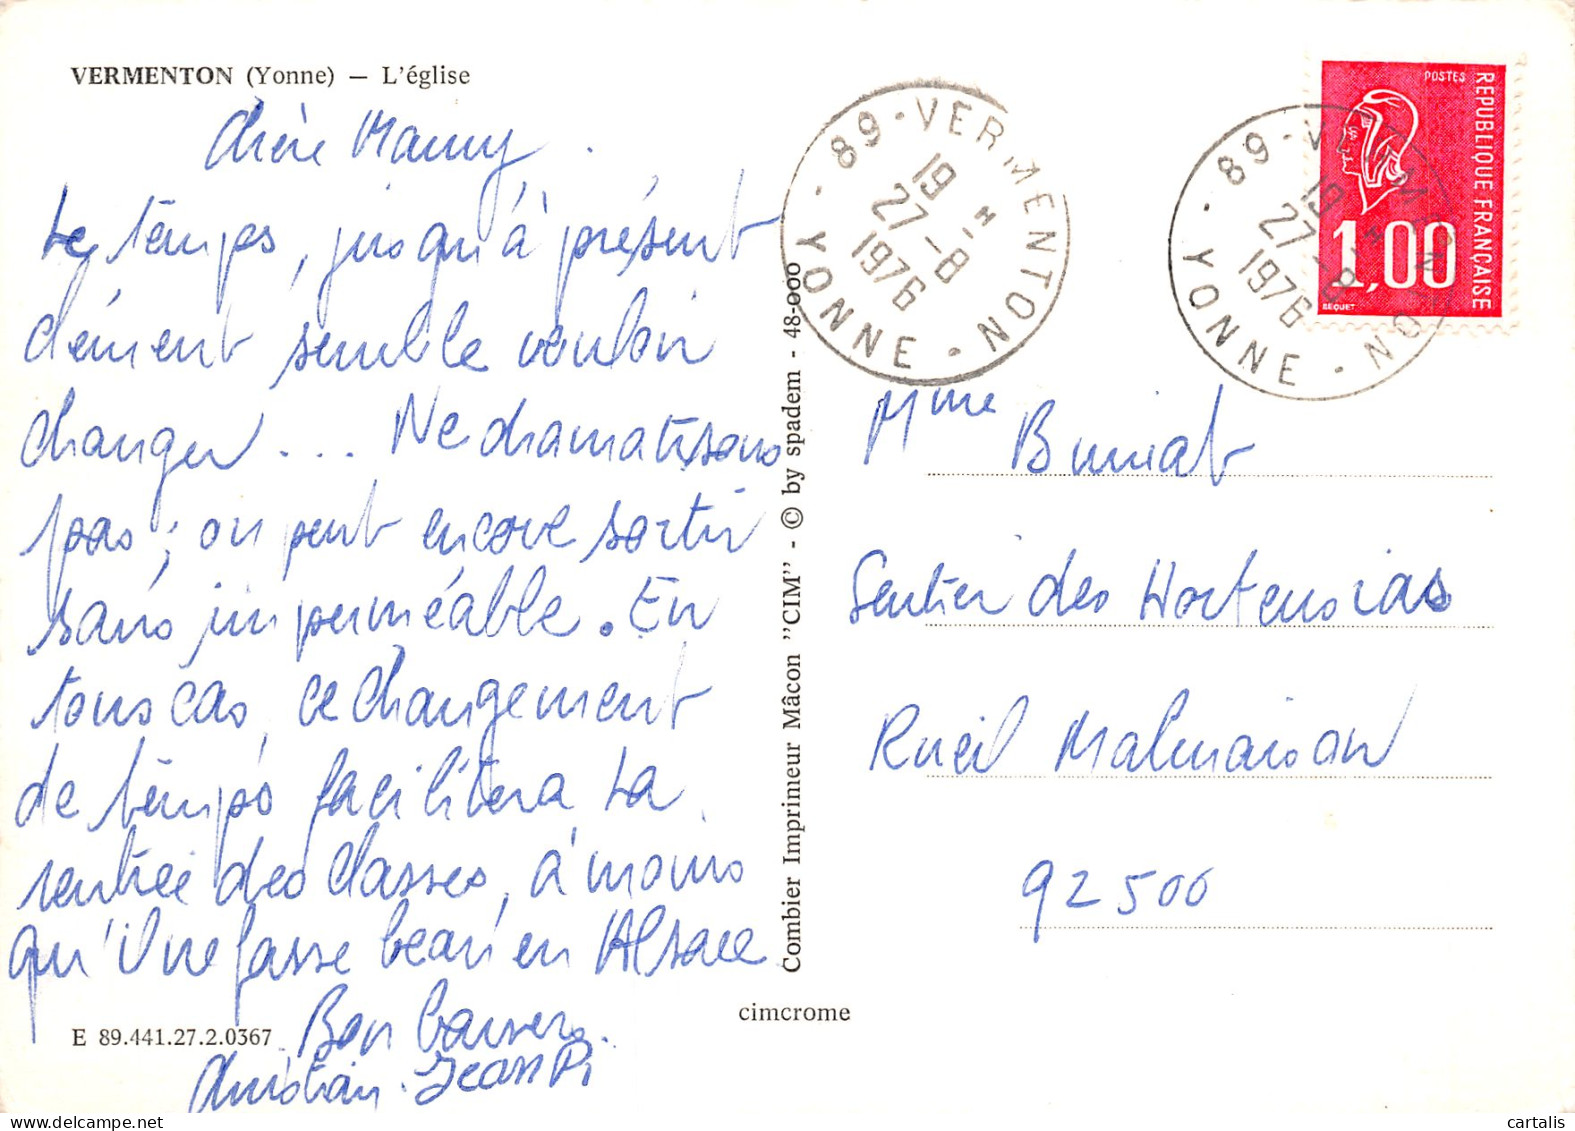 VERMENTON (Yonne) — L'église
Chère Mamy.
Le temps, jusqu'à présent
clément semble vouloir
changer ... Ne dramatisons
pas ; on peut encore sortir
sans imperméable. En
tous cas, ce changement
de temps facilitera la
rentrée des classes, à moins
qu'il ne fasse beau en Alsace
Bon baisers.
Christian. Jean Pi
E 89.441.27.2.0367
Combier Imprimeur Mâcon "CIM" - © by spadem - 48-000
cimcrome
89 - VERMENTON
19 H
27 - 8
1976
· YONNE ·
89 - VERMENTON
19 H
27 - 8
1976
· YONNE ·
POSTES
REPUBLIQUE FRANÇAISE
1,00
BEQUET
Mme
Sentier des Hortensias
Rueil Malmaison
92500
cartalis